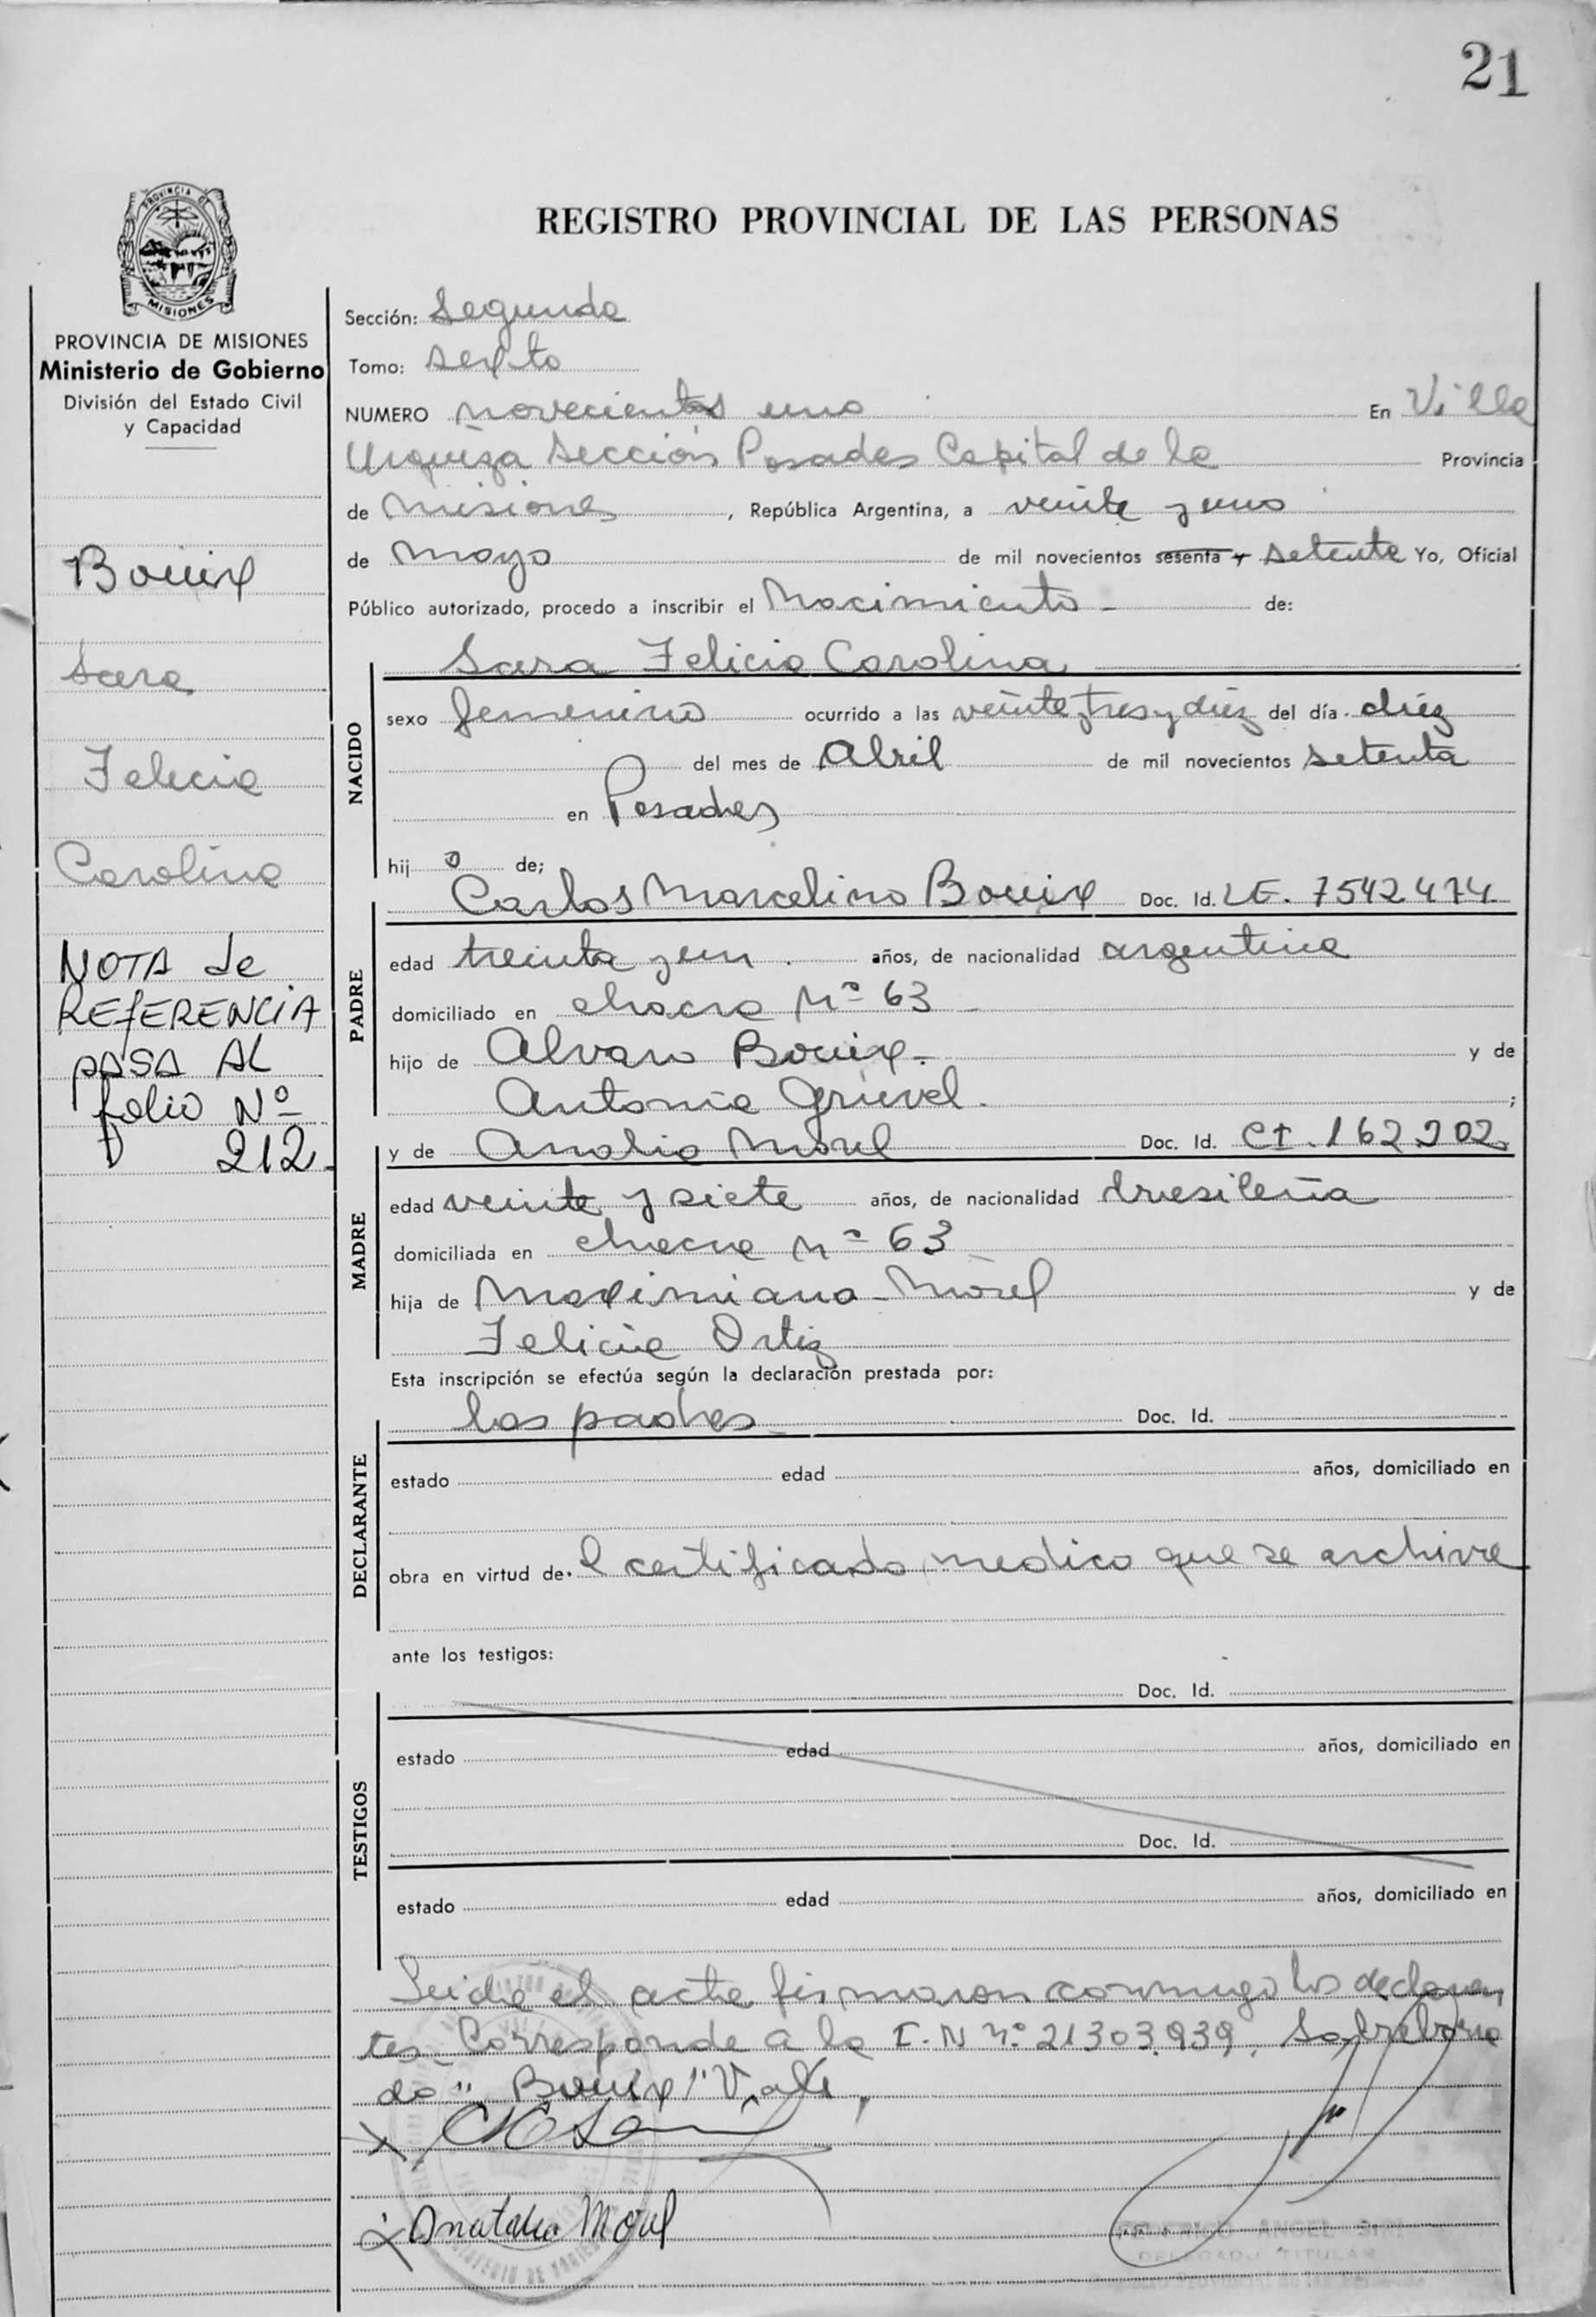 21
REGISTRO PROVINCIAL DE LAS PERSONAS
PROVINCIA DE MISIONES
Ministerio de Gobierno
División del Estado Civil
y Capacidad
Bouix
Sara
Felicia
Carolina
NOTA de
REFERENCIA
PASA AL
folio Nº
212.
Sección: Segunda
Tomo: sexto
NUMERO novecientos uno En Villa
Urquiza Sección Posadas Capital de la Provincia
de Misiones, República Argentina, a veinte y uno
de Mayo de mil novecientos sesenta y setenta Yo, Oficial
Público autorizado, procedo a inscribir el Nacimiento - de:
NACIDO
Sara Felicia Carolina
sexo femenino ocurrido a las veinte y tres y diez del día diez
del mes de Abril de mil novecientos setenta
en Posadas
hij a de;
PADRE
Carlos Marcelino Bouix Doc. Id. L.E. 7542474
edad treinta y un años, de nacionalidad argentina
domiciliado en chacra Nº 63
hijo de Alvaro Bouix. y de
Antonia Grievel. ;
MADRE
y de Analia Morel Doc. Id. C.I. 162.202
edad veinte y siete años, de nacionalidad brasileña
domiciliada en chacra nº 63
hija de Maximiana Morel y de
Felicia Ortiz
Esta inscripción se efectúa según la declaración prestada por:
DECLARANTE
los padres Doc. Id.
estado edad años, domiciliado en
obra en virtud de l certificado medico que se archiva
ante los testigos:
TESTIGOS
Doc. Id.
estado edad años, domiciliado en
Doc. Id.
estado edad años, domiciliado en
Leida el acta firmaron conmigo los declaran
tes. Corresponde a la I.N nº 21303.939. Sobreborra
do " Bouix" Vale
Anatalia Morel
ANGEL
DELEGADO TITULAR